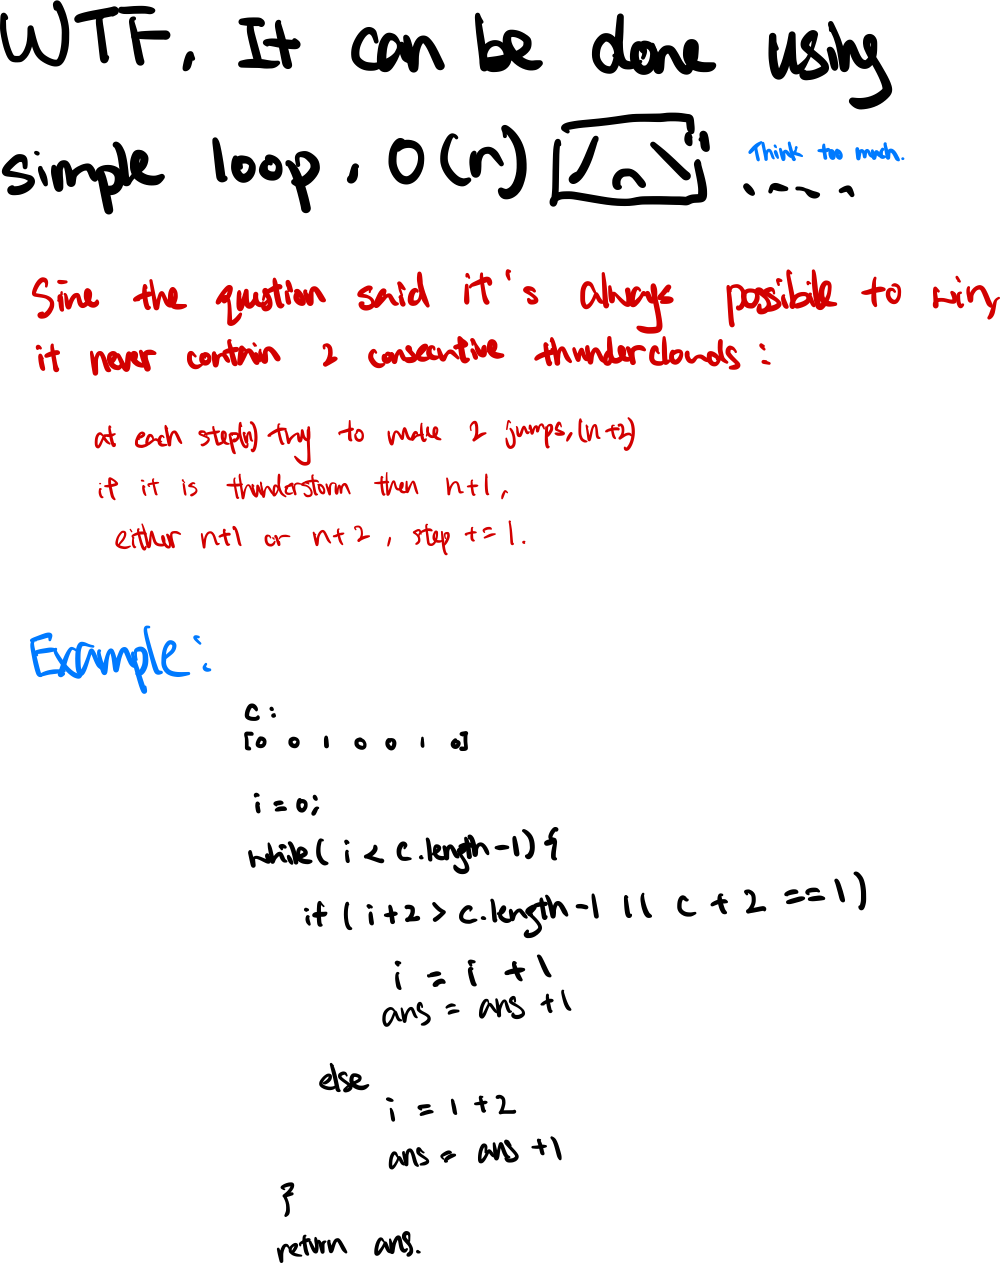 WTF, It can be done using
simple loop, O(n)
Think too much.
Sine the qustion said it's always possibile to win,
it never contain 2 consecutive thunderclouds:
at each step(n) try to make 2 jumps, (n+2)
if it is thunderstorm then n+1,
either n+1 or n+2, step += 1.
Example:
c:
[0 0 1 0 0 1 0]
i = 0;
while( i < c.length-1) {
if ( i+2 > c.length-1 || c + 2 == 1)
i = i + 1
ans = ans +1
else
i = 1 + 2
ans = ans +1
}
return ans.